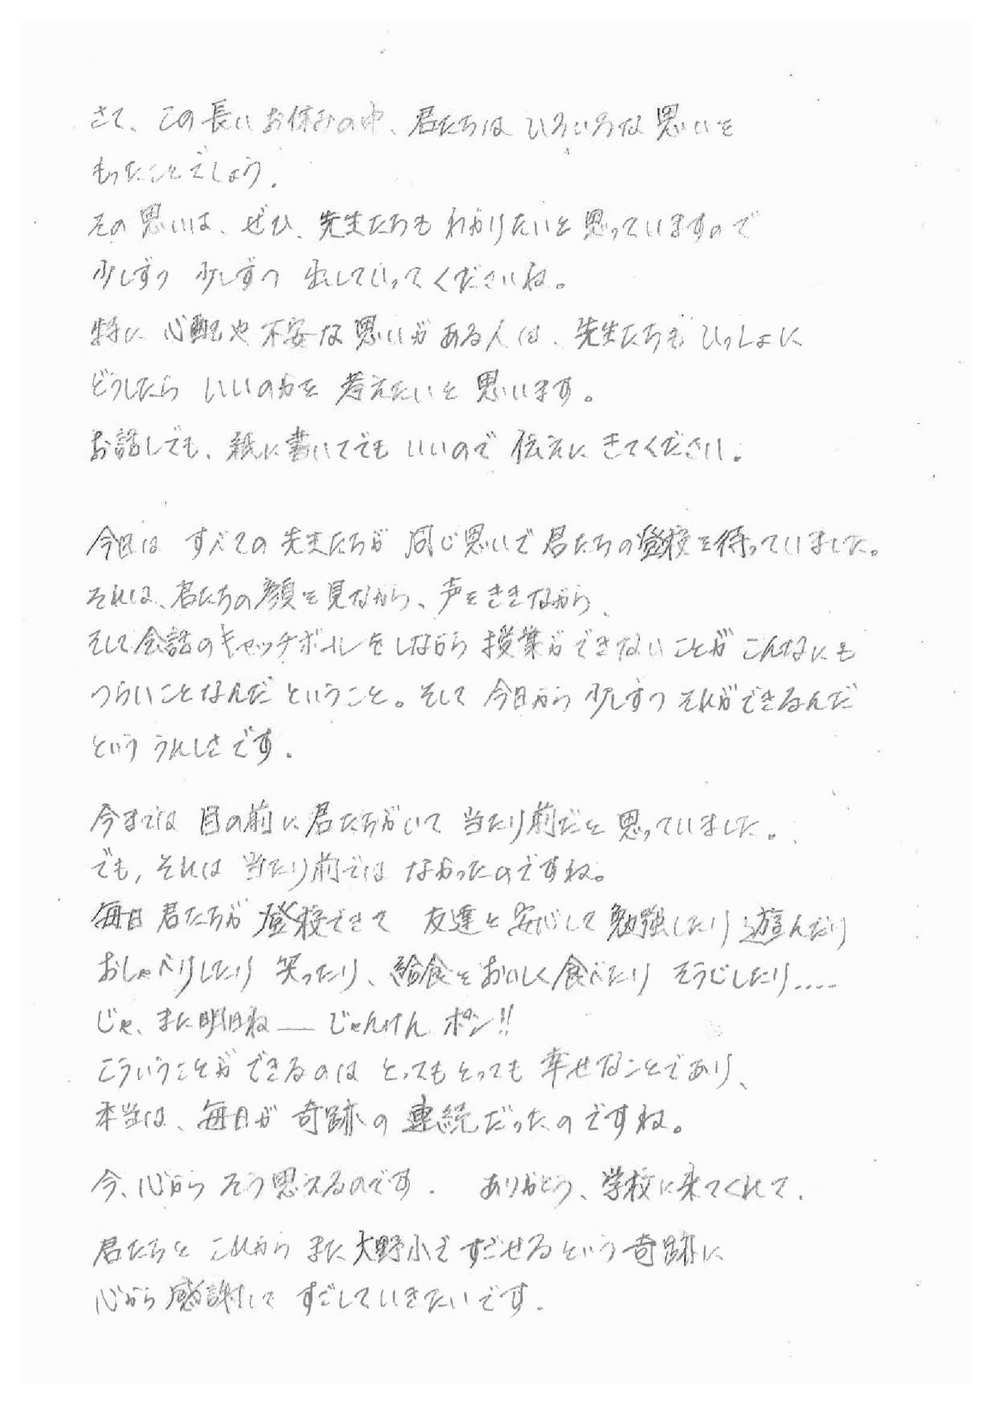 さて、この長いお休みの中、君たちは いろいろな 思いを
もったことでしょう。
その思いは、ぜひ、先生たちも わかりたいと 思っていますので
少しずつ 少しずつ 出していってくださいね。
特に 心配や 不安な 思いが ある人は、先生たちも いっしょに
どうしたら いいのかを 考えたいと 思います。
お話しでも、紙に書いてでも いいので 伝えに きてください。
今日は すべての 先生たちが 同じ思いで 君たちの登校を待っていました。
それは、君たちの顔を見ながら、声をききながら、
そして会話のキャッチボールをしながら 授業ができないことが こんなにも
つらいことなんだ ということ。そして 今日から 少しずつ それができるんだ
という うれしさです。
今までは 目の前に 君たちがいて 当たり前だと 思っていました。
でも、それは 当たり前では なかったのですね。
毎日 君たちが 登校できて 友達と 安心して 勉強したり 遊んだり
おしゃべりしたり 笑ったり、給食をおいしく食べたり そうじしたり....
じゃ、また明日ね ― じゃんけん ポン!!
こういうことが できるのは とってもとっても 幸せなことであり、
本当は、毎日が 奇跡の 連続だったのですね。
今、心から そう思えるのです。 ありがとう、学校に来てくれて。
君たちと これから また 大野小で すごせるという 奇跡に
心から 感謝して すごしていきたいです。